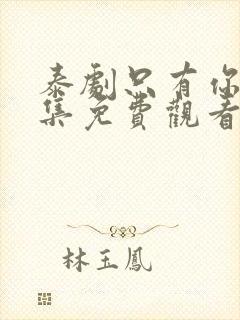 泰劇只有你
集免費觀看
林玉鳳